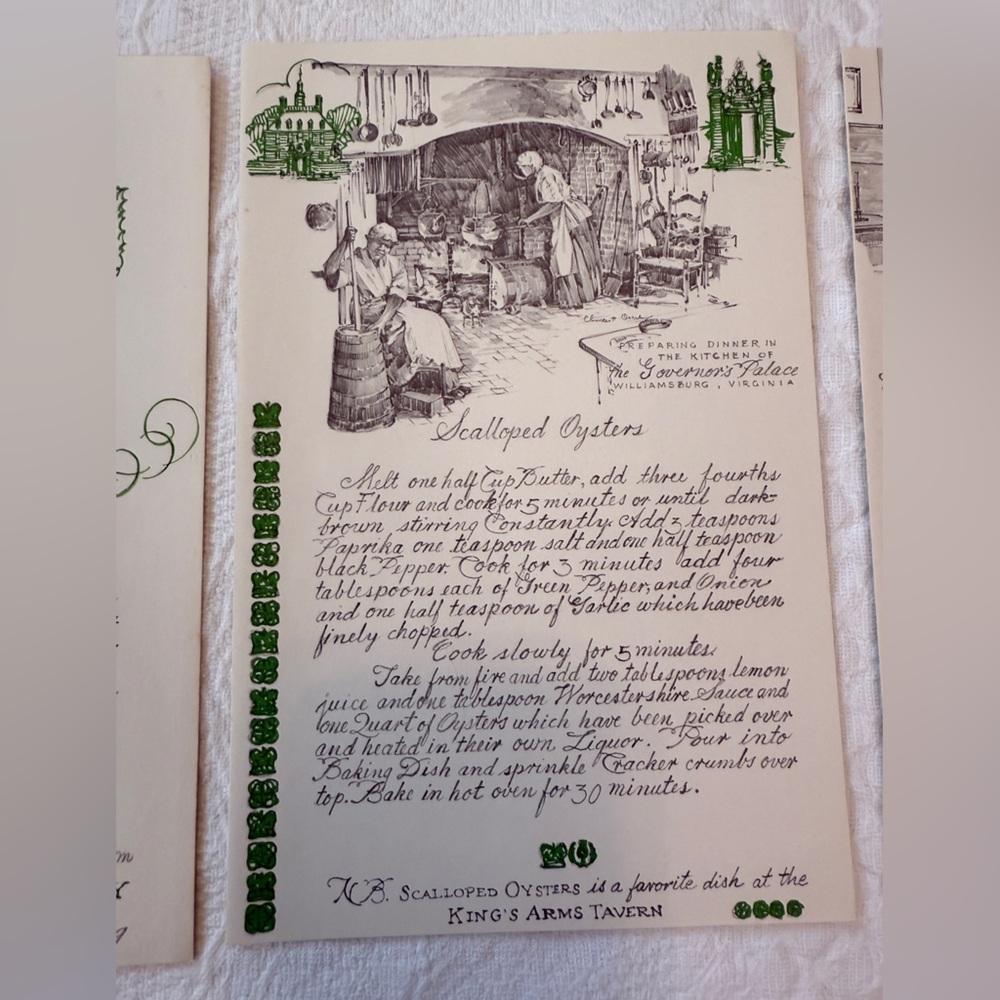 PREPARING DINNER IN
THE KITCHEN OF
the Governor's Palace
WILLIAMSBURG, VIRGINIA
Scalloped Oysters
Melt one half Cup Butter, add three fourths
Cup Flour and cook for 5 minutes or until dark-
brown, stirring Constantly. Add 3 teaspoons
Paprika one teaspoon salt and one half teaspoon
black Pepper. Cook for 3 minutes add four
tablespoons each of Green Pepper, and Onion
and one half teaspoon of Garlic which have been
finely chopped.
Cook slowly for 5 minutes.
Take from fire and add two tablespoons lemon
juice and one tablespoon Worcestershire Sauce and
one Quart of Oysters which have been picked over
and heated in their own Liquor. Pour into
Baking Dish and sprinkle Cracker crumbs over
top. Bake in hot oven for 30 minutes.
N.B. SCALLOPED OYSTERS is a favorite dish at the
KING'S ARMS TAVERN